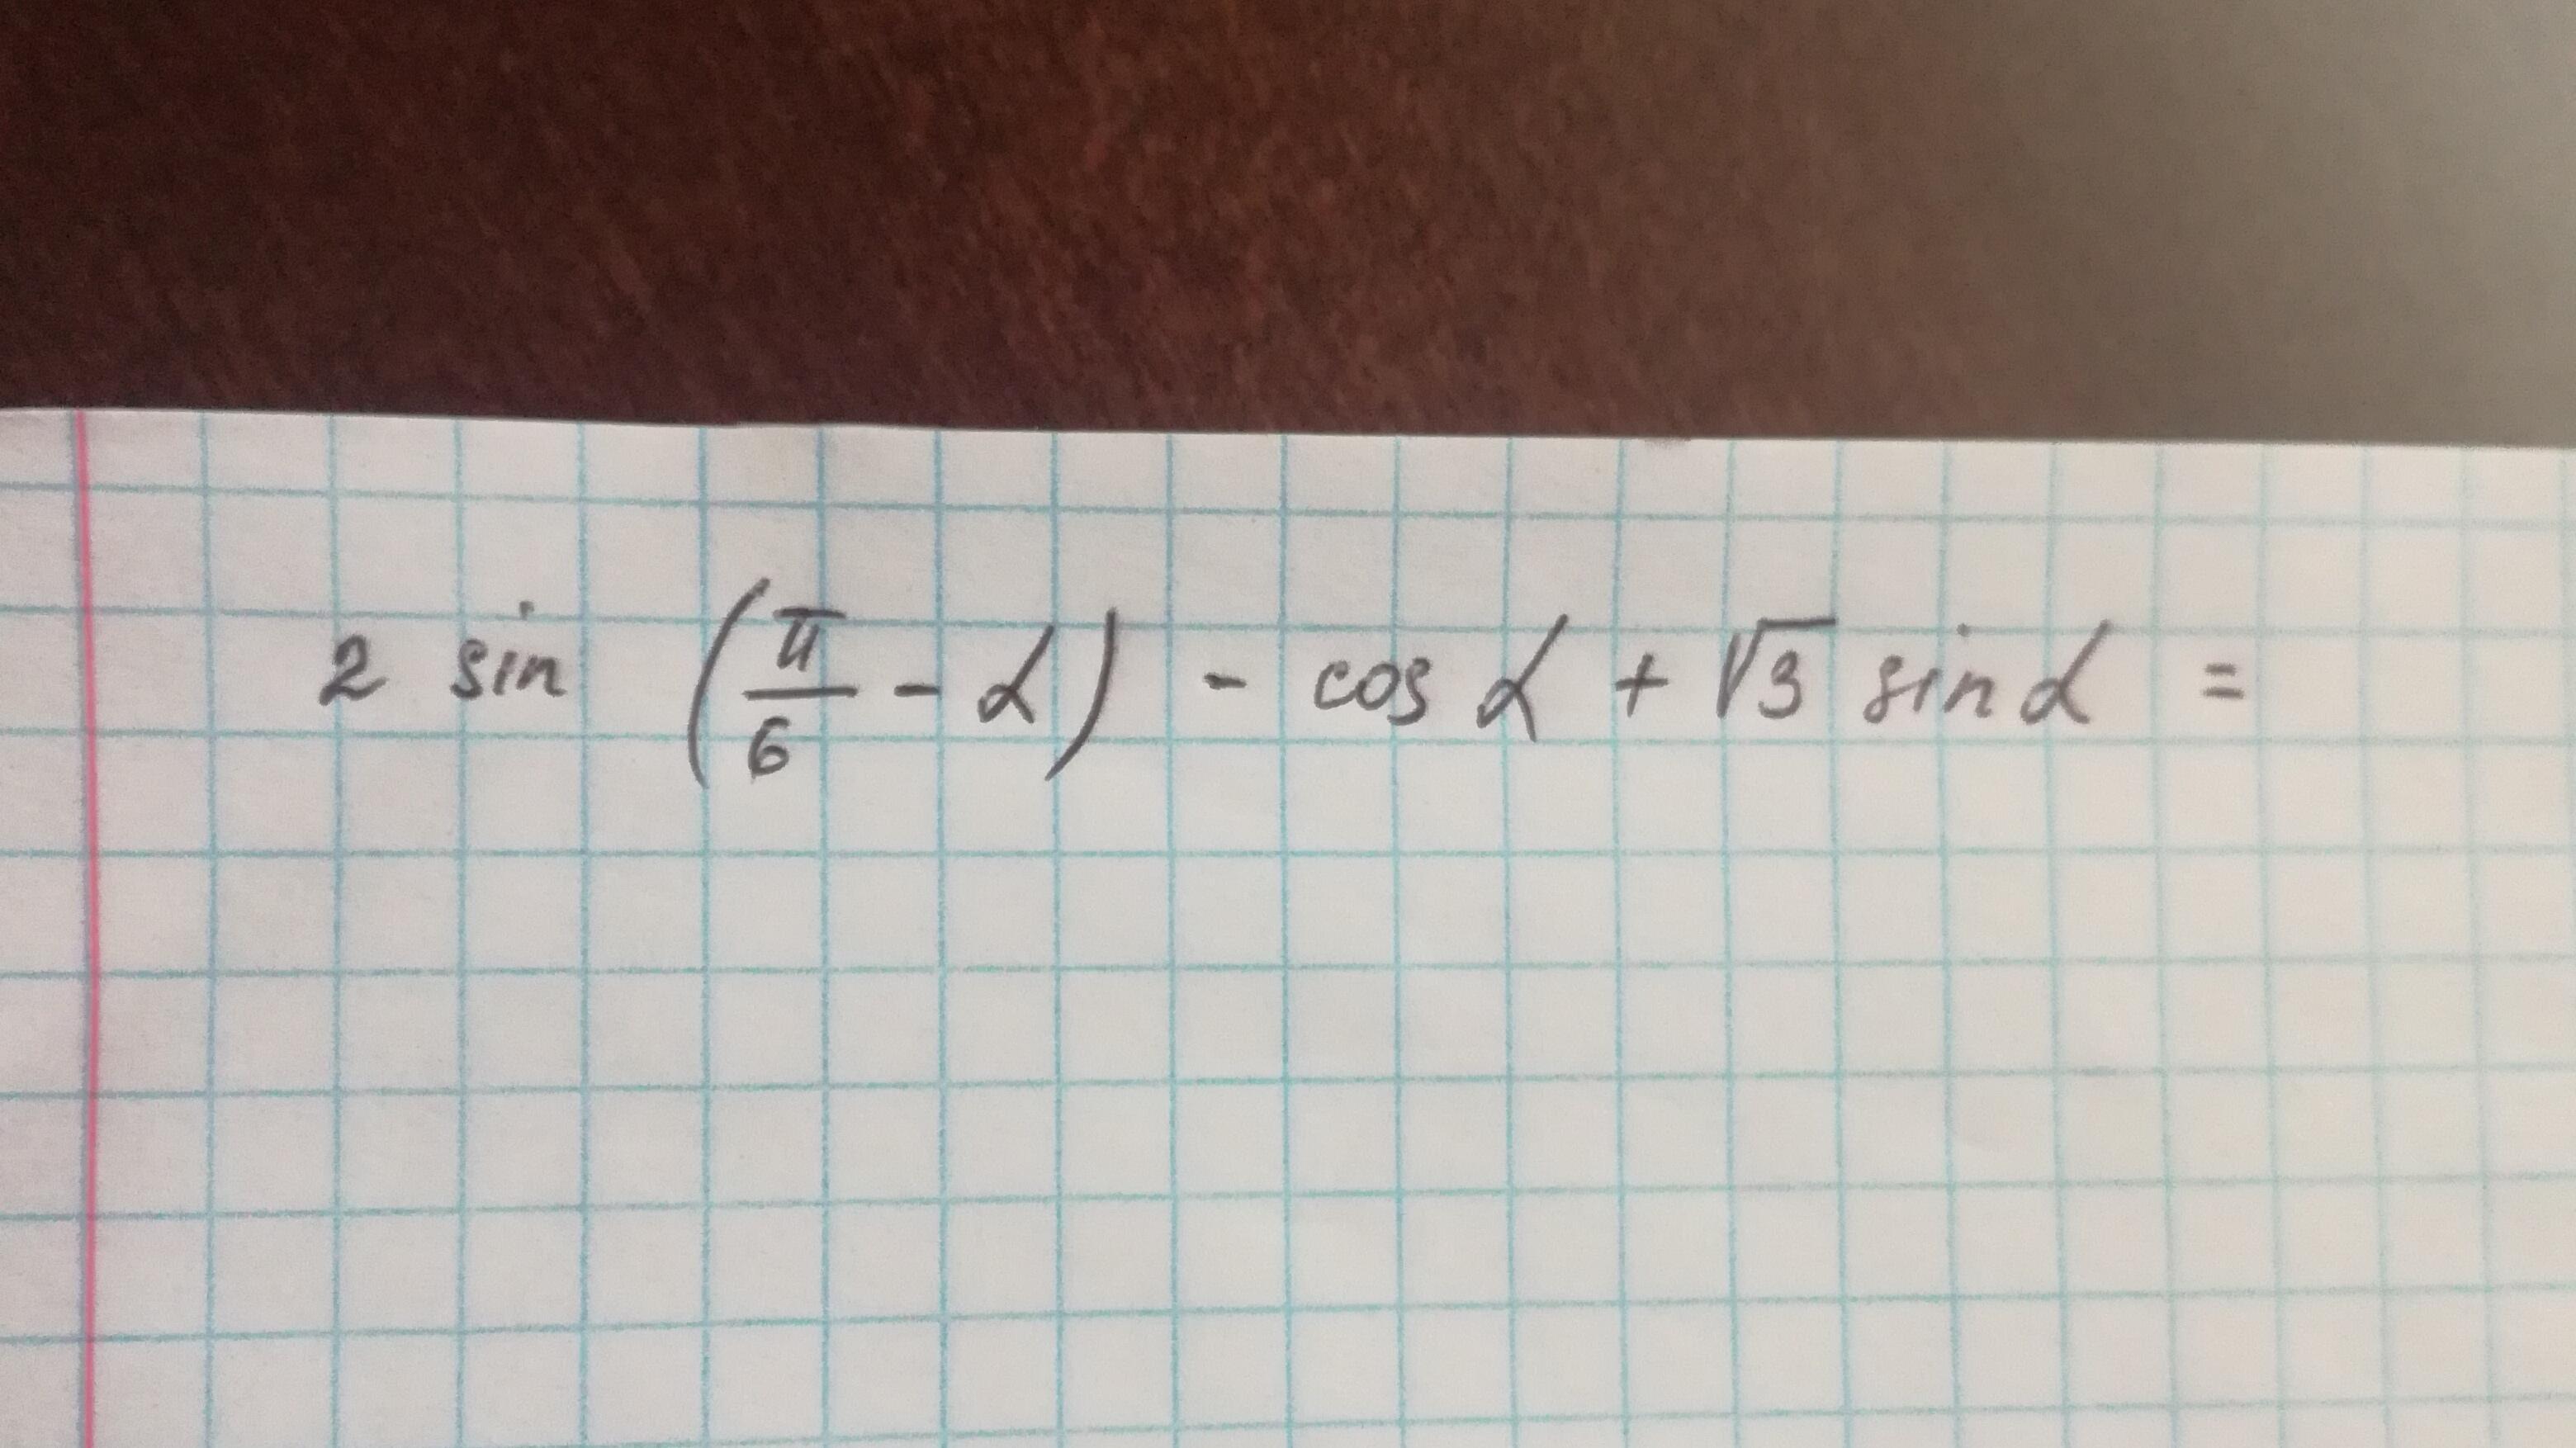 2 sin (π/6 - α) - cos α + √3 sin α =